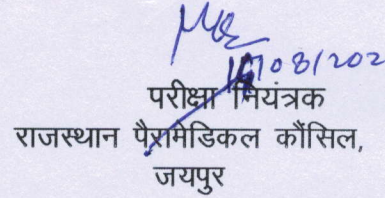 परीक्षा नियंत्रक
राजस्थान पैरामेडिकल कौंसिल,
जयपुर